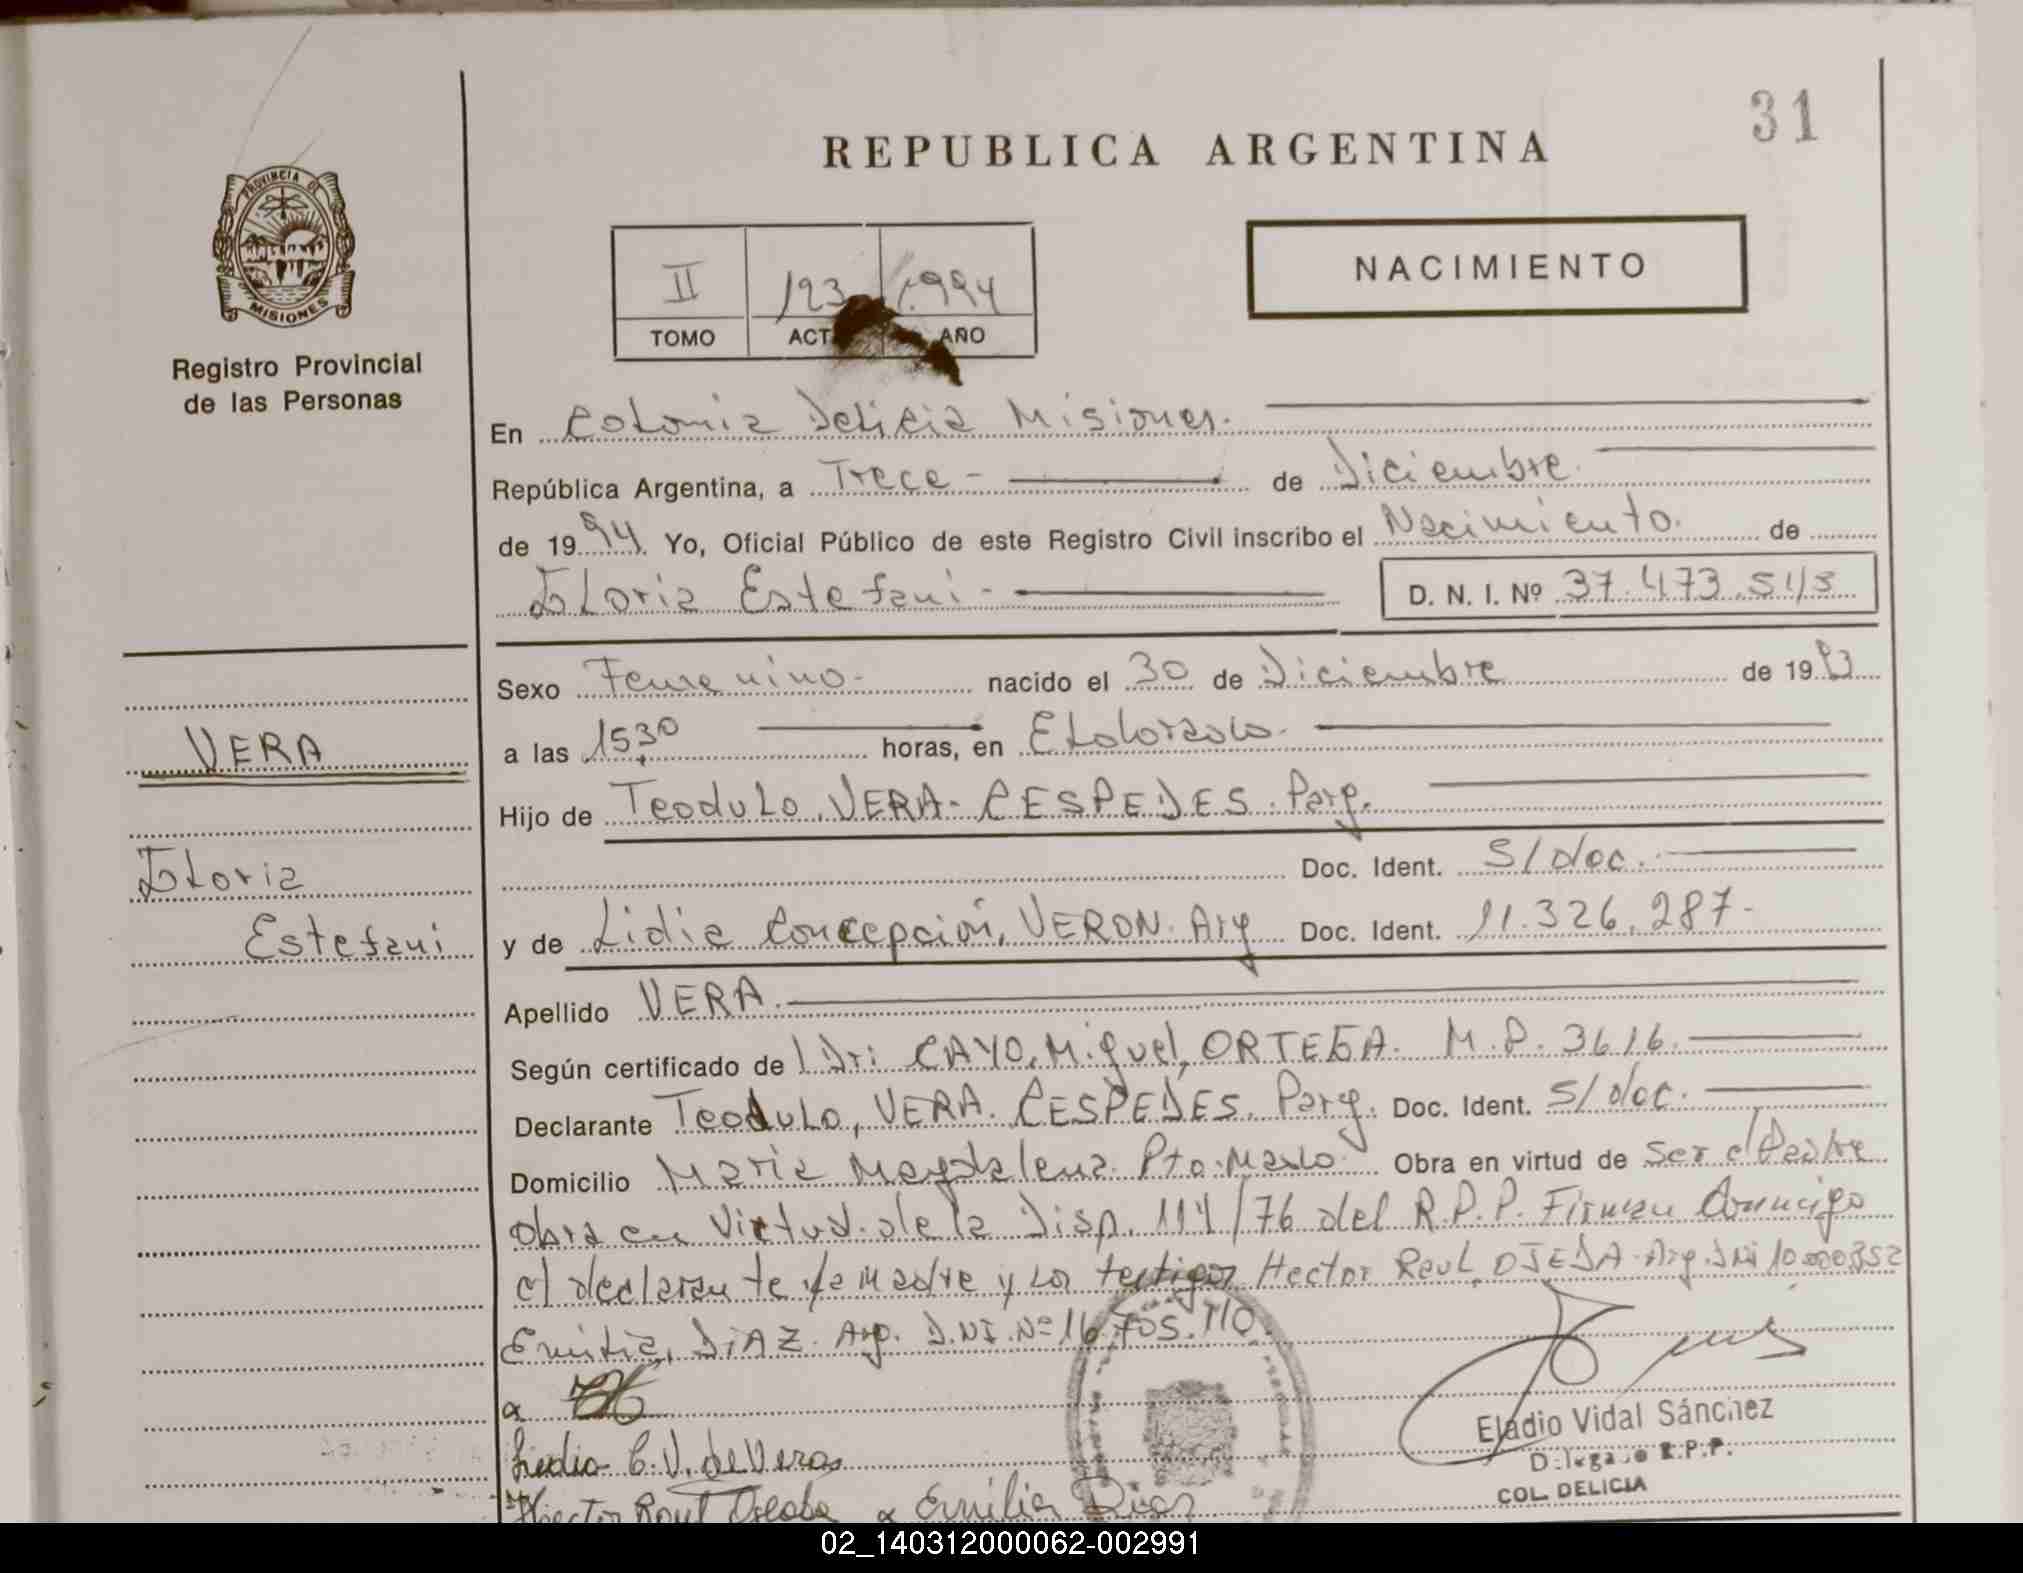 31
REPUBLICA ARGENTINA
PROVINCIA DE
MISIONES
Registro Provincial
de las Personas
II 123 1.994
TOMO ACT AÑO
NACIMIENTO
En Colonia Delicia Misiones.
República Argentina, a Trece - de Diciembre.
de 1994. Yo, Oficial Público de este Registro Civil inscribo el Nacimiento. de
Gloria Estefani - D. N. I. Nº 37.473.513
Sexo Femenino - nacido el 30 de Diciembre de 1993
VERA
a las 15,30 horas, en Eldorado.
Hijo de Teodulo, VERA - CESPEDES. Parg.
Gloria
Doc. Ident. S/doc.
Estefani
y de Lidia Concepción, VERON. Arg Doc. Ident. 11.326.287-
Apellido VERA.
Según certificado de Dr: CAYO, Miguel, ORTEGA. M.P. 3616.
Declarante Teodulo, VERA. CESPEDES. Parg. Doc. Ident. S/doc.
Domicilio Maria Magdalena. Pto. Mado Obra en virtud de ser el Padre
Obra en Virtud de la Disp. 114/76 del R.P.P. Firman Conmigo
el declarante la Madre y los testigos Hector Raul, OJEDA. Arg. DNI 10.000352
Emilia, DIAZ. Arg. D.NI. Nº 16.705.110.
Lidia C. V. de Vera
Hector Raul Ojeda Emilia Diaz
Eladio Vidal Sánchez
Delegado R.P.P.
COL. DELICIA
02_140312000062-002991